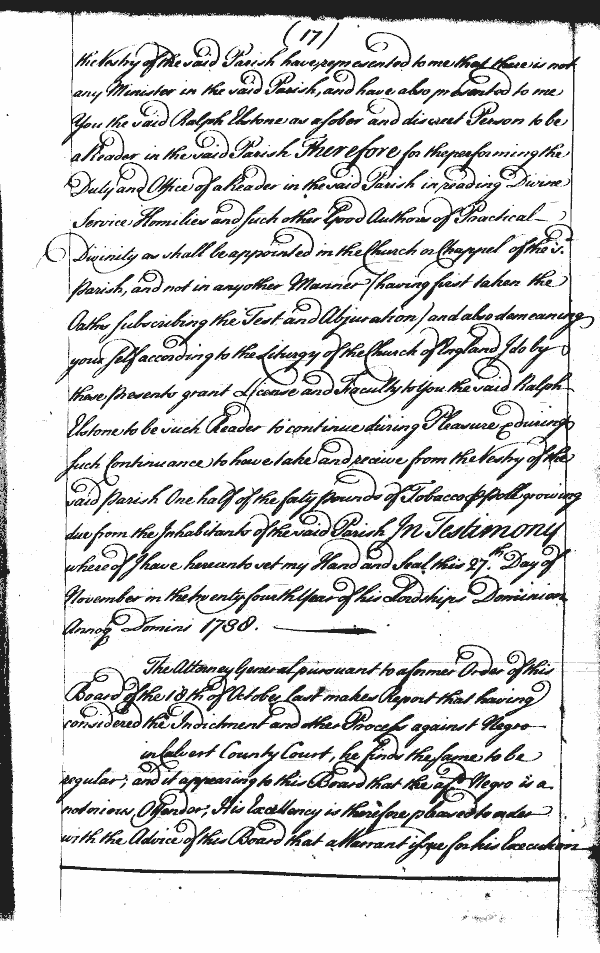 (17)
the Vestry of the said Parish have represented to me that there is not
any Minister in the said Parish, and have also presented to me
You the said Ralph Elstone as a sober and discreet Person to be
a Reader in the said Parish Therefore for the performing the
Duty and Office of a Reader in the said Parish in reading Divine
Service Homilies and such other Good Authors of Practical
Divinity as shall be appointed in the Church or Chappel of the sd.
Parish, and not in any other Manner (having first taken the
Oaths subscribing the Test and Abjuration) and also demeaning
your self according to the Liturgy of the Church of England I do by
these Presents grant License and Faculty to You the said Ralph
Elstone to be such Reader to continue during Pleasure & during
such Continuance to have take and receive from the Vestry of the
said Parish One half of the forty pounds of Tobacco p poll growing
due from the Inhabitants of the said Parish In Testimony
whereof I have hereunto set my Hand and Seal this 27.th Day of
November in the twenty fourth Year of his Lordships Dominion
Annoq Domini 1738.
The Attorney General pursuant to a former Order of this
Board of the 18th of October last makes Report that having
considered the Indictment and other Process against Negro
in Calvert County Court, he finds the same to be
regular; and it appearing to this Board that the afd Negro is a
notorious Offender; His Excellency is therefore pleased to order
with the Advice of this Board that a Warrant issue for his Execution